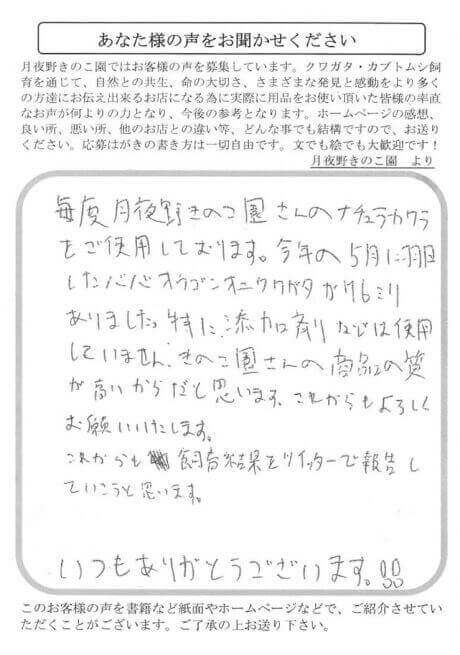 あなた様の声をお聞かせください
月夜野きのこ園ではお客様の声を募集しています。クワガタ・カブトムシ飼
育を通じて、自然との共生、命の大切さ、さまざまな発見と感動をより多く
の方達にお伝え出来るお店になる為に実際に用品をお使い頂いた皆様の率直
なお声が何よりの力となり、今後の参考となります。ホームページの感想、
良い所、悪い所、他のお店との違い等、どんな事でも結構ですので、お送り
ください。応募はがきの書き方は一切自由です。文でも絵でも大歓迎です！
月夜野きのこ園 より
毎度月夜野きのこ園さんのナチュラルクワ
をご使用しております。今年の5月に羽日
したババオウゴンオニクワガタが76ミリ
ありました。特に添加剤などは使用
していません。きのこ園さんの商品の質
が高いからだと思います。これからもよろしく
お願いいたします。
これからも飼育結果をツイッターで報告し
ていこうと思います。
いつもありがとうございます。!!
このお客様の声を書籍など紙面やホームページなどで、ご紹介させてい
ただくことがございます。ご了承の上お送り下さい。